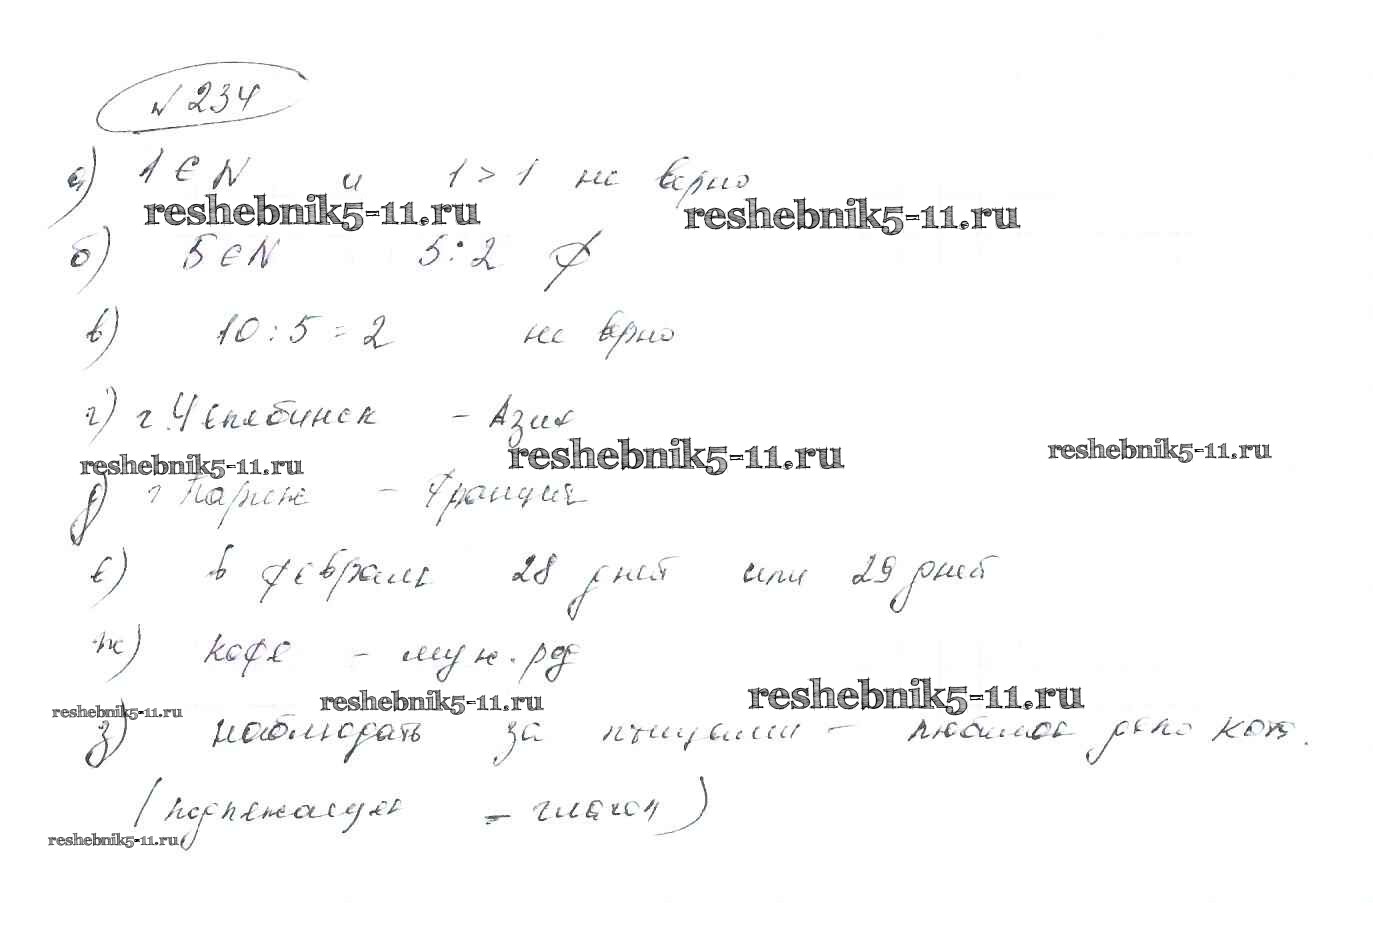 № 234
а) 1 ∈ N и 1 > 1 не верно
reshebnik5-11.ru reshebnik5-11.ru
б) 5 ∈ N 5 : 2 ∅
в) 10 : 5 = 2 не верно
г) г. Челябинск - Азия
reshebnik5-11.ru reshebnik5-11.ru reshebnik5-11.ru
д) г Париж - Франция
е) в феврале 28 дней или 29 дней
ж) кофе - муж. род
reshebnik5-11.ru reshebnik5-11.ru reshebnik5-11.ru
з) наблюдать за птицами - любимое дело кота.
(подлежащее - глагол)
reshebnik5-11.ru